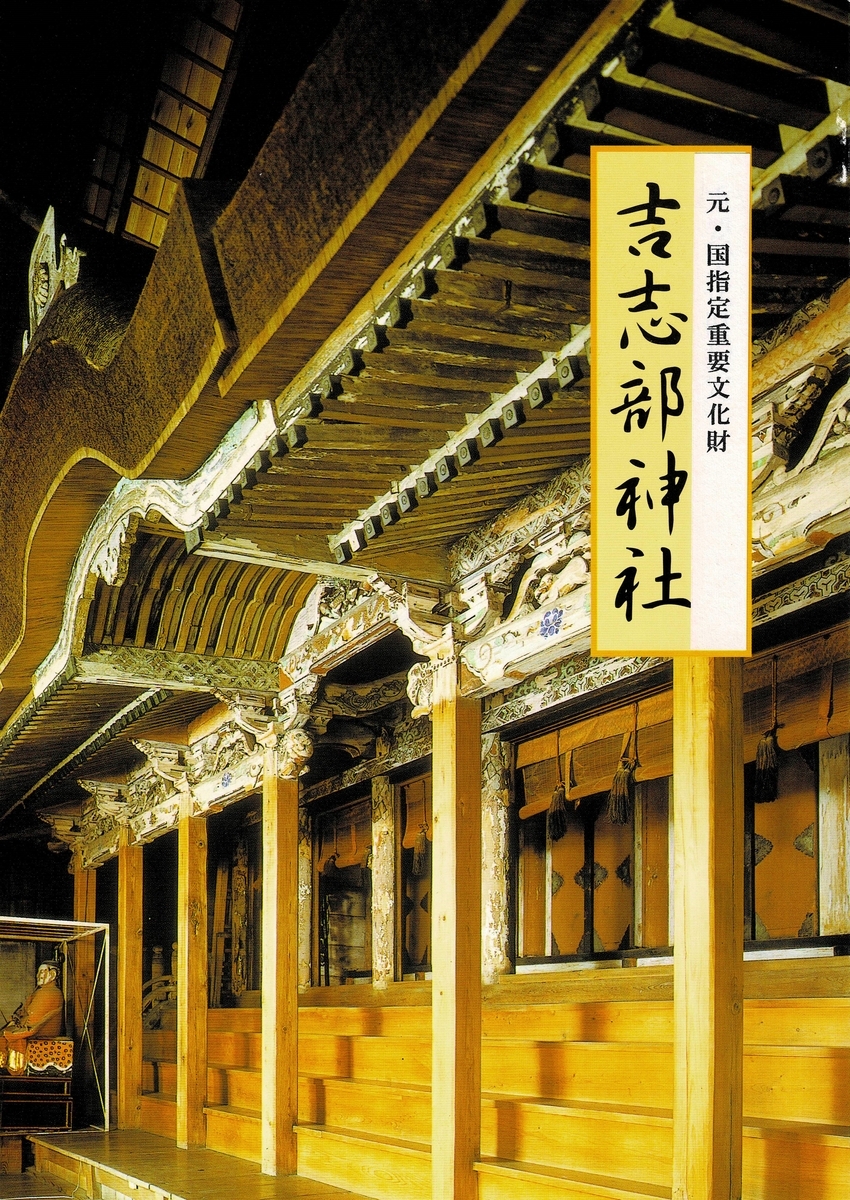 元・国指定重要文化財
吉志部神社